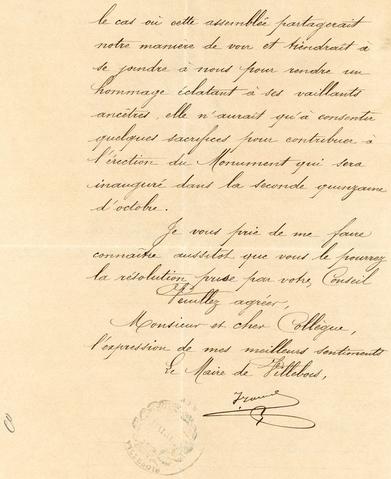 le cas où cette assemblée partagerait
notre manière de voir et tiendrait à
se joindre à nous pour rendre un
hommage éclatant à ses vaillants
ancêtres, elle n'aurait qu'à consentir
quelques sacrifices pour contribuer à
l'érection du Monument qui sera
inauguré dans la seconde quinzaine
d'octobre.
Je vous prie de me faire
connaître aussitôt que vous le pourrez
la résolution prise par votre Conseil
Veuillez agréer,
Monsieur et cher Collègue,
l'expression de mes meilleurs sentiments
Le Maire de Villebois,